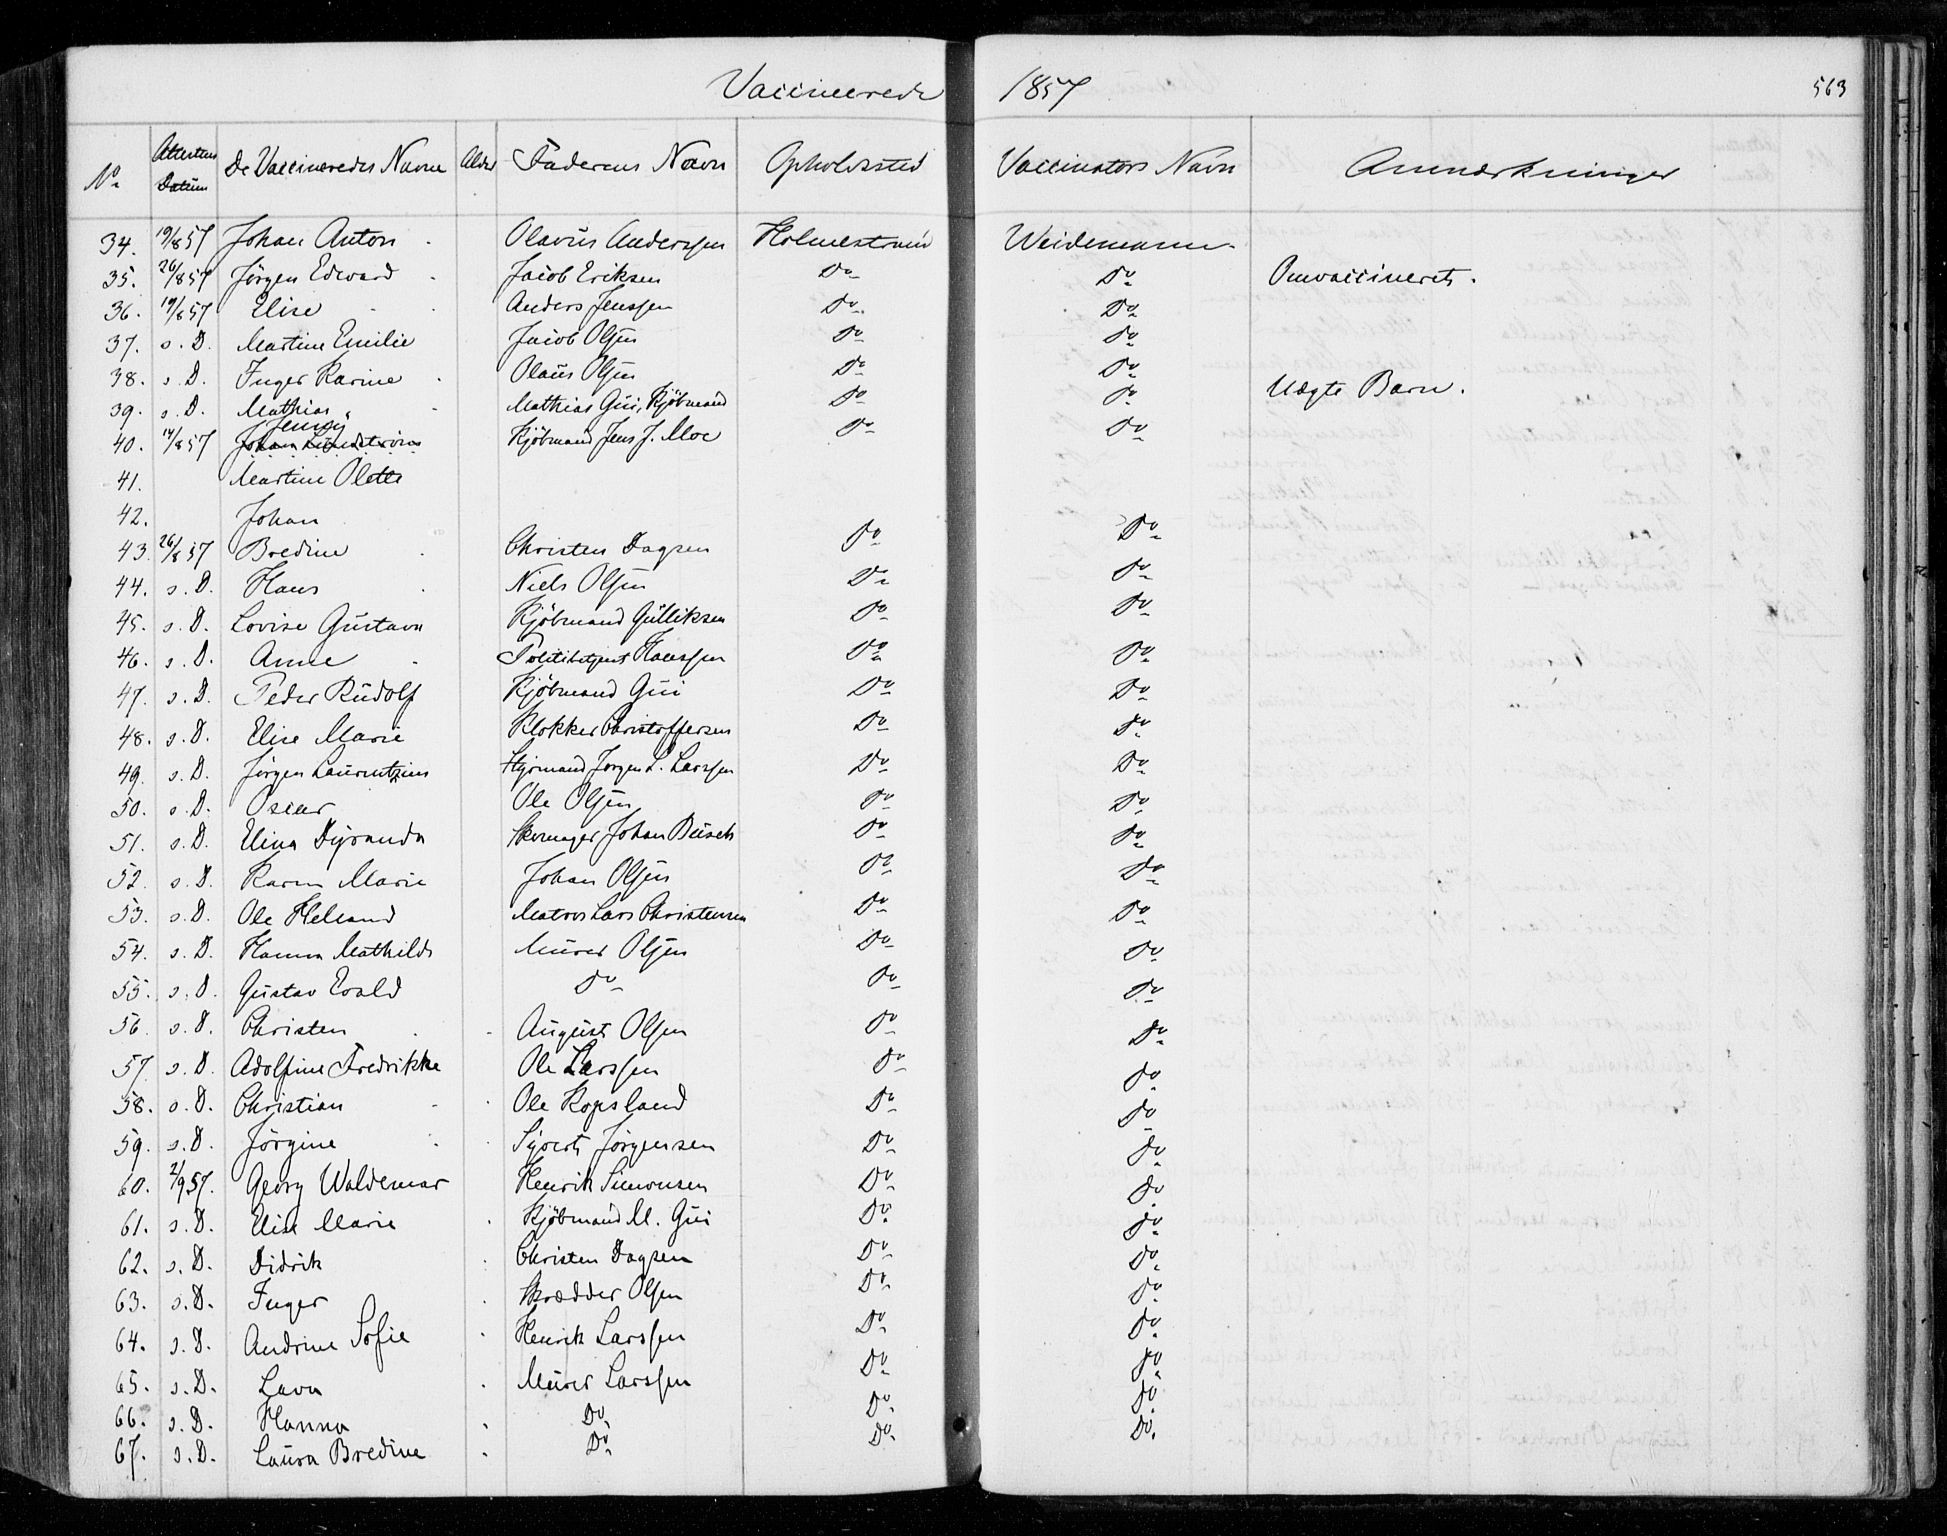 Vaccinerede 1857 563
No Attestens Datum De Vaccineredes Navne Alder Faderens Navn Opholdssted Vaccinators Navn Anmærkninger
34. 19/8 57 Johan Anton Olavus Anderssen Holmestrand Weidemann
35. 26/8 57 Jørgen Edvard Jacob Eriksen Do Do Omvaccineret.
36. 19/8 57 Elise Anders Jenssen Do Do
37. s. D. Martine Emilie Jacob Olsen Do Do
38. s. D. Inger Karine Olaus Olsen Do Do
39. s. D. Mathias Mathias Gui, Kjøbmand Do Do Uægte Barn.
40. 14/8 57 Jenny Johan Lundstrøm Kjøbmand Jens J. Moe Do Do
41. Martine Olette
42. Johan
43. 26/8 57 Bredine Christen Dagsen Do Do
44. s. D. Hans Niels Olsen Do Do
45. s. D. Lovise Gustava Kjøbmand Gulliksen Do Do
46. s. D. Anne Politibetjent Hanssen Do Do
47. s. D. Peder Rudolf Kjøbmand Gui Do Do
48. s. D. Elise Marie Klokker Christoffersen Do Do
49. s. D. Jørgen Laurentzius Styrmand Jørgen L. Larssen Do Do
50. s. D. Oscar Ole Olsen Do Do
51. s. D. Elina Dyranda Skomager Johan Busch Do Do
52. s. D. Karen Marie Johan Olsen Do Do
53. s. D. Ole Helland Matros Lars Christensen Do Do
54. s. D. Hanna Mathilde Murer Olsen Do Do
55. s. D. Gustav Evald Do Do Do
56. s. D. Christen August Olsen Do Do
57. s. D. Adolfine Fredrikke Ole Larssen Do Do
58. s. D. Christian Ole Kopsland Do Do
59. s. D. Jørgine Syvert Jørgensen Do Do
60. 2/9 57. Georg Waldemar Henrik Simonsen Do Do
61. s. D. Elise Marie Kjøbmand M. Gui Do Do
62. s. D. Didrik Christen Dagsen Do Do
63. s. D. Inger Skrædder Olsen Do Do
64. s. D. Andrine Sofie Henrik Larssen Do Do
65. s. D. Lava Murer Larssen Do Do
66. s. D. Hanna Do Do Do
67. s. D. Laura Bredine Do Do Do.